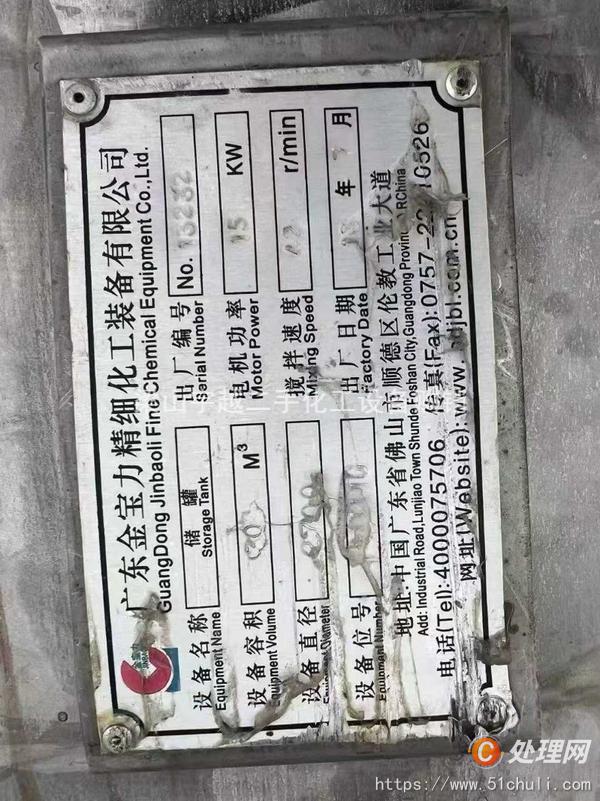 广东金宝力精细化工装备有限公司
GuangDong Jinbaoli Fine Chemical Equipment Co.,Ltd.
设备名称 储罐 出厂编号 No. 13232
Equipment Name Storage Tank Serial Number
设备容积 20 M³ 电机功率 15 KW
Equipment Volume Motor Power
设备直径 搅拌速度 r/min
Equipment Diameter Mixing Speed
设备位号 出厂日期 年 月
Equipment Number Factory Date
地址:中国广东省佛山市顺德区伦教工业大道
Add: Industrial Road,Lunjiao Town Shunde Foshan City,Guangdong Province RChina
电话(Tel):4000075706 传真(Fax):0757-
网址(Website):www. djbl.com.cn
二手化工设
C 处理网
https://www.51chuli.com/